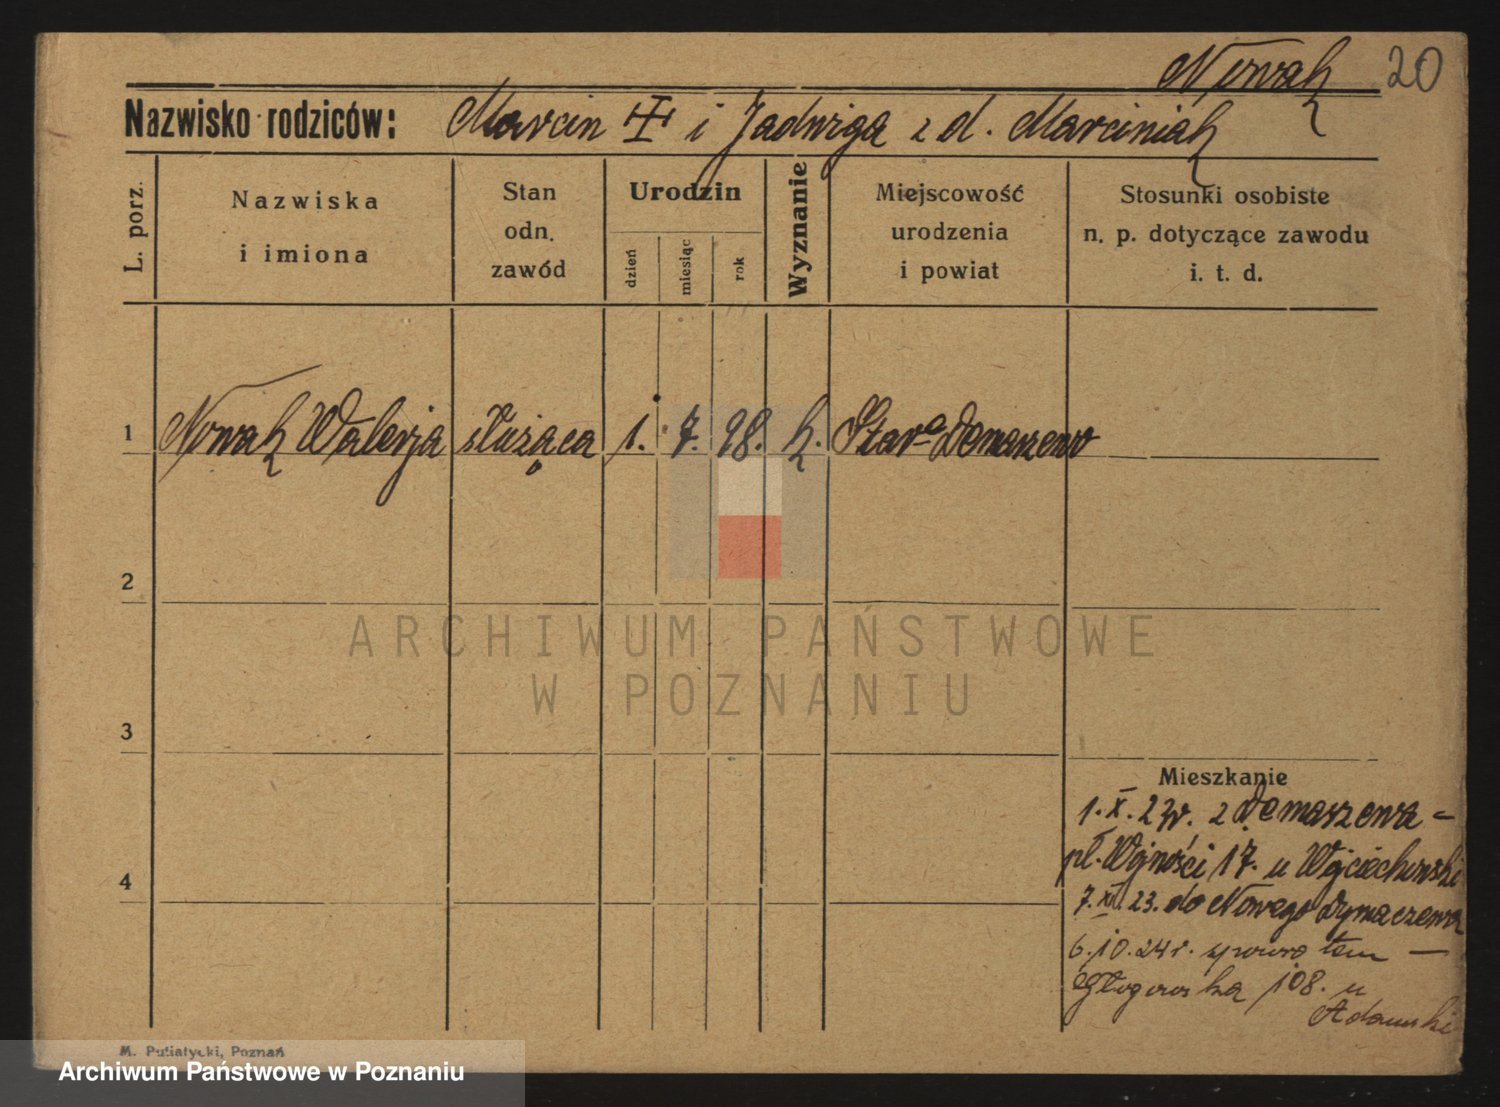 Nowak 20
Nazwisko rodziców: Marcin i Jadwiga z d. Marciniak
L. porz.
Nazwiska
i imiona
Stan
odn.
zawód
Urodzin
dzień
miesiąc
rok
Wyznanie
Miejscowość
urodzenia
i powiat
Stosunki osobiste
n. p. dotyczące zawodu
i. t. d.
1 Nowak Walerja służąca 1. 7. 98. k. Stare Demaszewo
2
3
4
Mieszkanie
1. X. 23r. z Demaszewa -
pl. Wolności 17. u Wojciechowski
7. XI. 23. do Nowego Dymaczewa
6.10.24 r. zpowrotem —
Głogowska 108. u
Adamski
ARCHIWUM PAŃSTWOWE
W POZNANIU
M. Putiatycki, Poznań
Archiwum Państwowe w Poznaniu